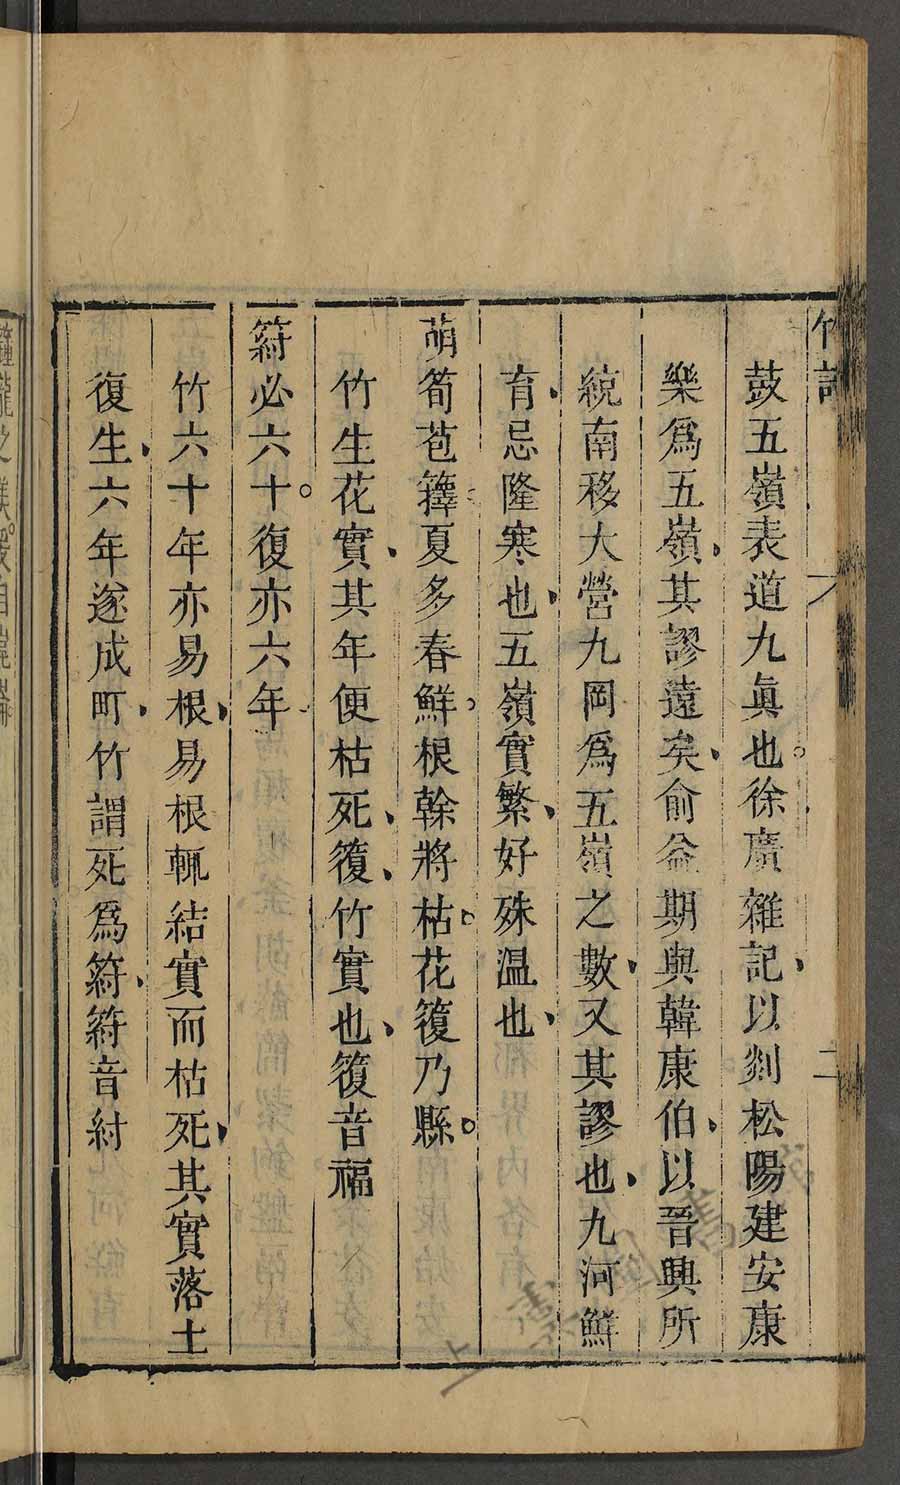 竹譜
二
鼓五嶺表道九眞也。徐廣雜記、以剡松陽建安康
樂爲五嶺、其謬遠矣、俞益期與韓康伯、以晉興所
統南移大營九岡爲五嶺之數、又其謬也、九河鮮
育、忌隆寒也、五嶺實繁、好殊温也、
萌筍苞籜夏多春鮮。根榦將枯。花䈏乃縣。
竹生花實、其年便枯死、䈏、竹實也、䈏音福
䈙必六十。復亦六年
竹六十年亦易根、易根輒結實而枯死、其實落土
復生、六年遂成町、竹謂死爲䈙、䈙音紂